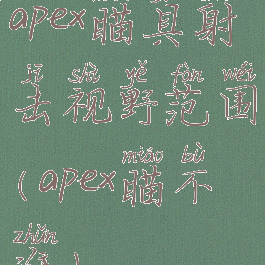 apex瞄具射
jī shì yě fàn wéi
击视野范围
miáo bù
(apex瞄不
zhǔn